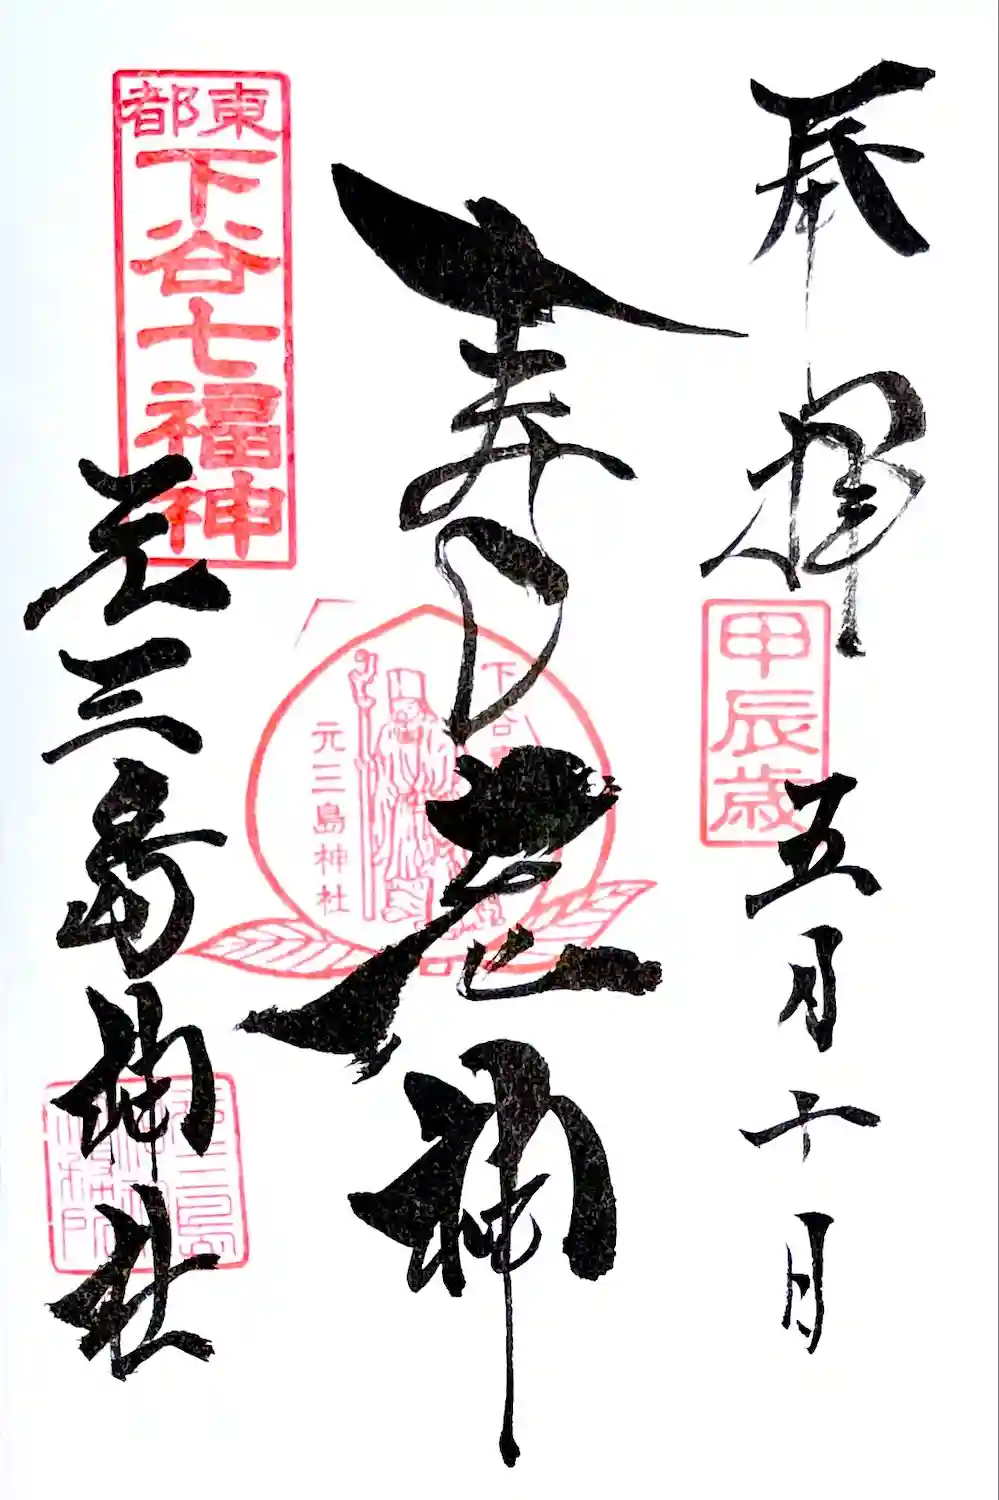 奉拝
甲辰歳
五月十日
寿老神
東都
下谷七福神
元三島神社
下谷
元三島神社